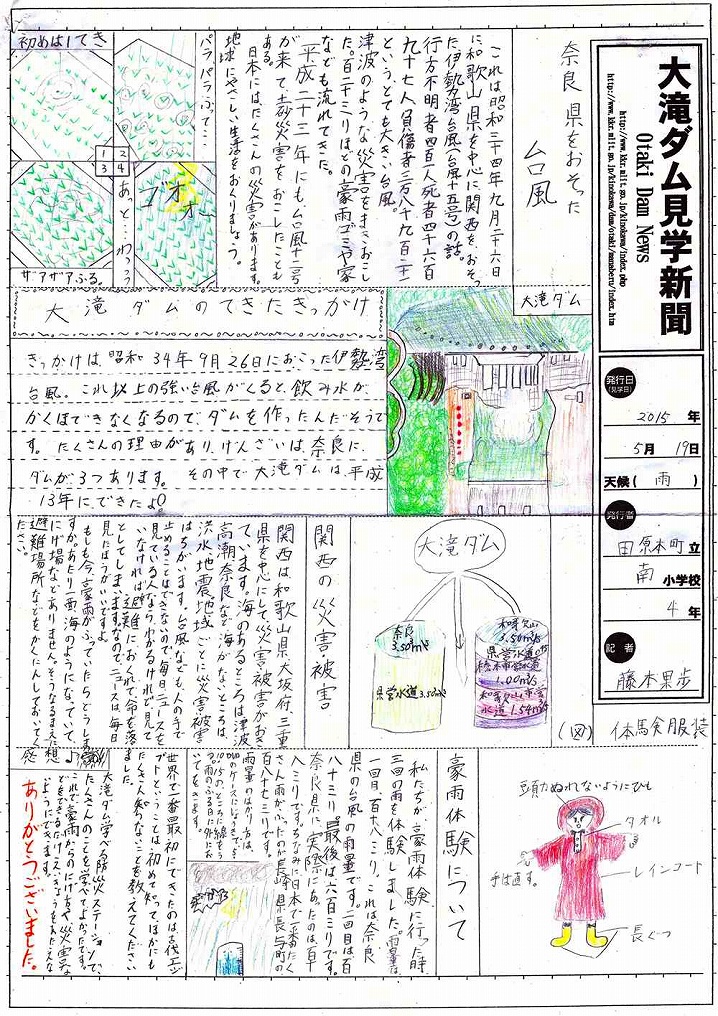 大滝ダム見学新聞
Otaki Dam News
http://www.kkr.mlit.go.jp/kinokawa/index.php
http://www.kkr.mlit.go.jp/kinokawa/dam/otaki/manaberu/index.htm
発行日
(見学日)
2015 年
5月 19日
天候( 雨 )
発行者
田原本町 立
南 小学校
4 年
記者
藤本果歩
奈良県をおそった
台風
これは昭和三十四年九月二十六日
に和歌山県を中心に関西をおそっ
た伊勢湾台風(台風十五号)の話。
行方不明者四百一人死者四千六百
九十七人、負傷者三万八千九百二十一
というとても大きい台風。
津波のような災害をまきおこし
た。百二十三ミリほどの豪雨、ゴミや家
なども流れてきた。
平成二十三年にも、台風十二号
が来て、土砂災害をおこしたことも
ある。
日本にはたくさんの災害があります。
地球にやさしい生活をおくりましょう。
初めは1てき
パラパラふって…
1
2
3
4
ザアザアふる。
あっと…わっう
ゴォォー
大滝ダム
大滝ダムのできたきっかけ
きっかけは、昭和34年9月26日におこった伊勢湾
台風。これ以上の強い台風がくると、飲み水が
かくほできなくなるので、ダムを作ったんだそうで
す。たくさんの理由があり、げんざいは、奈良に、
ダムが3つあります。その中で大滝ダムは、平成
13年にできたよ!
関西の災害被害
関西は、和歌山県、大坂府、三重
県を中心にして、災害被害がおき
ています。海のあるところは津波
高潮、奈良など海がないところは、
洪水、地震、地域ごとに災害被害
はちがいます。台風なども人の手で
止めることはできないので、毎日ニュースを
見ている人ならわかるけれど、見て
いなければ避難におくれて、命を落
としてしまいます。なので、ニュースは、毎日
見たほうがいいですよ。
もしも今、豪雨がふっていたらどうしま
すか。あたり一面、海のようになっていて、
にげ場などありません。そうなるまえに
避難場所などをかくにんしておいてく
ださい。
大滝ダム
奈良
3.50m³/s
県営水道3.50m³/s
和歌山
3.50m³/s
県営水道
橋本市営水道
1.00m³/s
和歌山市営
水道 1.54m³/s
(図) 体験服装
頭力ぬれないようにひも
タオル
手は直す。
レインコート
長ぐつ
豪雨体験について
私たちが、豪雨体験に行った時、
三回の雨を体験しました。雨量は、
一回目、百十八ミリ、これは奈良
県の台風の雨量です。二回目は百
八十三ミリ。最後は六百ミリです。
奈良県に実際にあったのは、百十
八ミリです。ちなみに日本で一番たく
さん雨がふったのが長崎県長与町の
百八十七ミリです。
雨量のはかり方は、
世界で一番最初にできたのは、古代エジ
プトということは、初めて知って、ほかにも
たくさん知らないことを教えてください
ました。
感想♪
大滝ダム学べる防災ステーションで、
たくさんのことを学べてよかったです。
ありがとうございました。